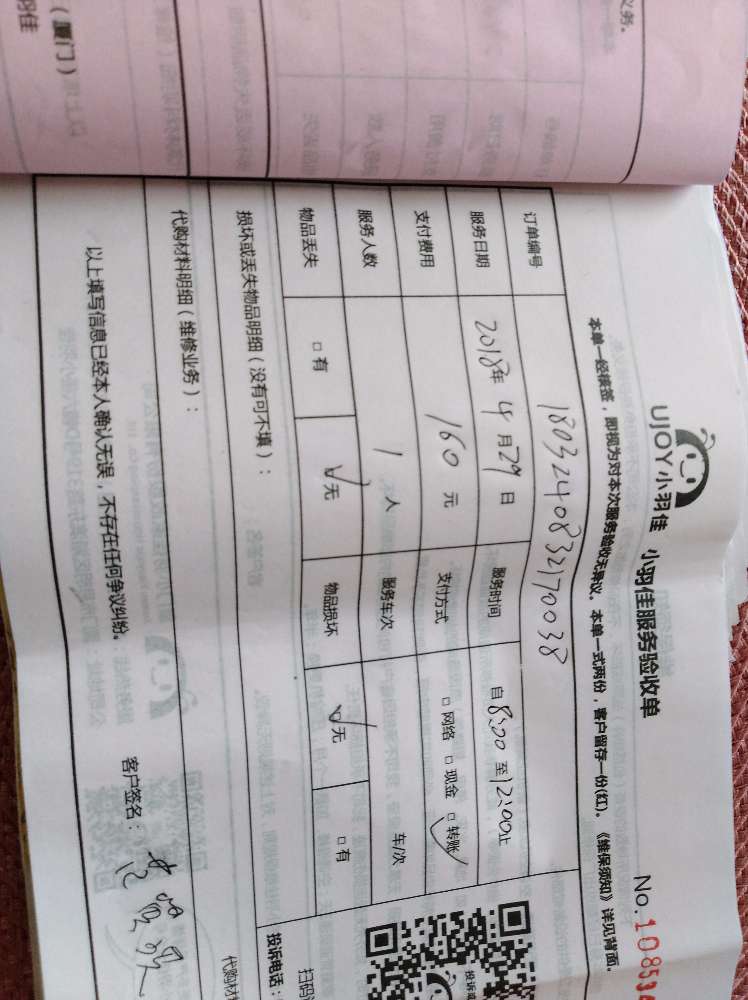 义务。
（厦门）
羽佳
UJOY小羽佳 小羽佳服务验收单
No.10853
本单一经接签，即视为对本次服务验收无异议。本单一式两份，客户留存一份(红)。《维保须知》详见背面。
订单编号 18032408332170038
服务日期 2018年 4月29日 服务时间 自8:00至12:00止
支付费用 160元 支付方式 □网络 □现金 □转账
服务人数 1人 服务车次 车/次
物品丢失 □有 □无 物品损坏 □无 □有
损坏或丢失物品明细（没有可不填）：
代购材料明细（维修业务）：
以上填写信息已经本人确认无误，不存在任何争议纠纷。 客户签名：
投诉电话：
扫码
代购材